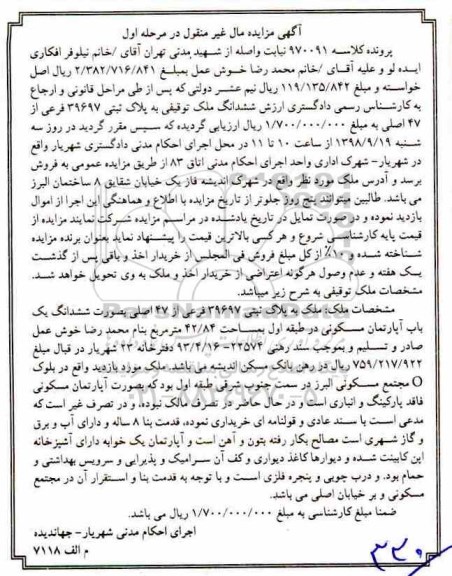 آگهی مزایده مال غیر منقول در مرحله اول
پرونده کلاسه ۹۷۰۰۹۱ نیابت واصله از شهید مدنی تهران آقای /خانم نیلوفر افکاری
ایده لو و علیه آقای /خانم محمد رضا خوش عمل بمبلغ ۲/۳۸۲/۷۱۶/۸۴۱ ریال اصل
خواسته و مبلغ ۱۱۹/۱۳۵/۸۴۲ ریال نیم عشر دولتی که پس از طی مراحل قانونی و ارجاع
به کارشناس رسمی دادگستری ارزش ششدانگ ملک توقیفی به پلاک ثبتی ۳۹۶۹۷ فرعی از
۴۷ اصلی به مبلغ ۱/۷۰۰/۰۰۰/۰۰۰ ریال ارزیابی گردیده که سپس مقرر گردید در روز سه
شنبه ۱۳۹۸/۹/۱۹ از ساعت ۱۰ تا ۱۱ در محل اجرای احکام مدنی دادگستری شهریار واقع
در شهریار- شهرک اداری واحد اجرای احکام مدنی اتاق ۸۳ از طریق مزایده عمومی به فروش
برسد و آدرس ملک مورد نظر واقع در شهرک اندیشه فاز یک خیابان شقایق ۸ ساختمان البرز
می باشد. طالبین میتوانند پنج روز جلوتر از تاریخ مزایده با اطلاع و هماهنگی این اجرا از اموال
بازدید نموده و در صورت تمایل در تاریخ یادشده در مراسم مزایده شرکت نمایند مزایده از
قیمت پایه کارشناسی شروع و هر کسی بالاترین قیمت را پیشنهاد نماید بعنوان برنده مزایده
شناخته شده و ۱۰٪ از کل مبلغ فروش فی المجلس از خریدار اخذ و باقی پس از گذشت
یک هفته و عدم وصول هرگونه اعتراضی از خریدار اخذ و ملک به وی تحویل خواهد شد.
مشخصات ملک توقیفی به شرح زیر میباشد.
مشخصات ملک: ملک به پلاک ثبتی ۳۹۶۹۷ فرعی از ۴۷ اصلی بصورت ششدانگ یک
باب آپارتمان مسکونی در طبقه اول بمساحت ۴۲/۸۴ مترمربع بنام محمد رضا خوش عمل
صادر و تسلیم و بموجب سند رهنی ۲۲۵۷۴- ۹۳/۴/۱۶ دفترخانه ۲۳ شهریار در قبال مبلغ
۷۵۹/۲۱۷/۹۲۲ ریال در رهن بانک مسکن اندیشه می باشد. ملک مورد بازدید واقع در بلوک
O مجتمع مسکونی البرز در سمت جنوب شرقی طبقه اول بود که بصورت آپارتمان مسکونی
فاقد پارکینگ و انباری است و در حال حاضر در تصرف مالک نبوده، و در تصرف غیر است که
مدعی است با سند عادی و قولنامه ای خریداری نموده، قدمت بنا ۸ ساله و دارای آب و برق
و گاز شهری است مصالح بکار رفته بتون و آهن است و آپارتمان یک خوابه دارای آشپزخانه
اپن کابینت شده و دیوارها کاغذ دیواری و کف آن سرامیک و پذیرایی و سرویس بهداشتی و
حمام بود. و درب چوبی و پنجره فلزی است و با توجه به قدمت بنا و استقرار آن در مجتمع
مسکونی و بر خیابان اصلی می باشد.
ضمنا مبلغ کارشناسی به مبلغ ۱/۷۰۰/۰۰۰/۰۰۰ ریال می باشد.
اجرای احکام مدنی شهریار- جهاندیده
م الف ۷۱۱۸